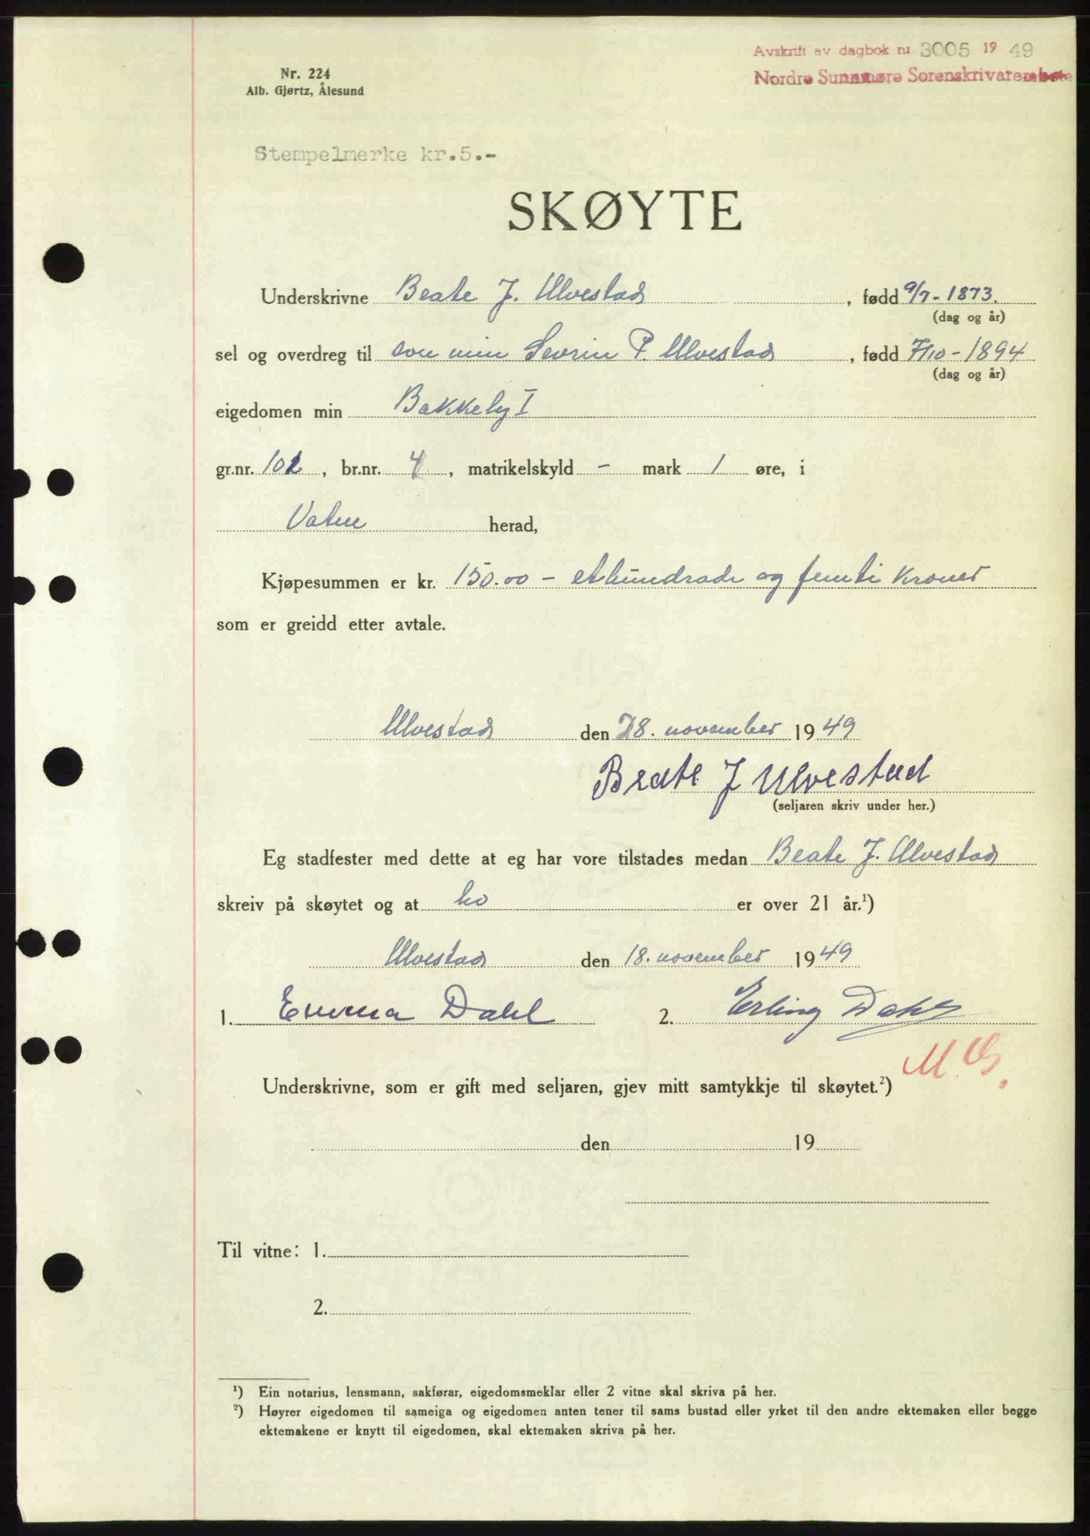 Avskrift av dagbok nr 3005 19 49
Nordre Sunnmøre Sorenskrivarembete
Nr. 224
Alb. Gjørtz, Ålesund
Stempelmerke kr.5.-
SKØYTE
Underskrivne Beate J. Ulvestad, fødd 9/7-1873.
(dag og år)
sel og overdreg til son min Sevrin P. Ulvestad, fødd 7/10-1894
(dag og år)
eigedomen min Bakkely I
gr.nr. 102, br.nr. 4, matrikelskyld - mark 1 øre, i
Vatne herad,
Kjøpesummen er kr. 150.00 - etthundrade og femti kroner
som er greidd etter avtale.
Ulvestad den 28. november 1949
Beate J Ulvestad
(seljaren skriv under her.)
Eg stadfester med dette at eg har vore tilstades medan Beate J. Ulvestad
skreiv på skøytet og at ho er over 21 år.¹)
Ulvestad den 18. november 1949
1. Emma Dahl 2. Erling Dahl
M.G.
Underskrivne, som er gift med seljaren, gjev mitt samtykkje til skøytet.²)
den 19
Til vitne: 1.
2.
¹) Ein notarius, lensmann, sakførar, eigedomsmeklar eller 2 vitne skal skriva på her.
²) Høyrer eigedomen til sameiga og eigedomen anten tener til sams bustad eller yrket til den andre ektemaken eller begge
ektemakene er knytt til eigedomen, skal ektemaken skriva på her.